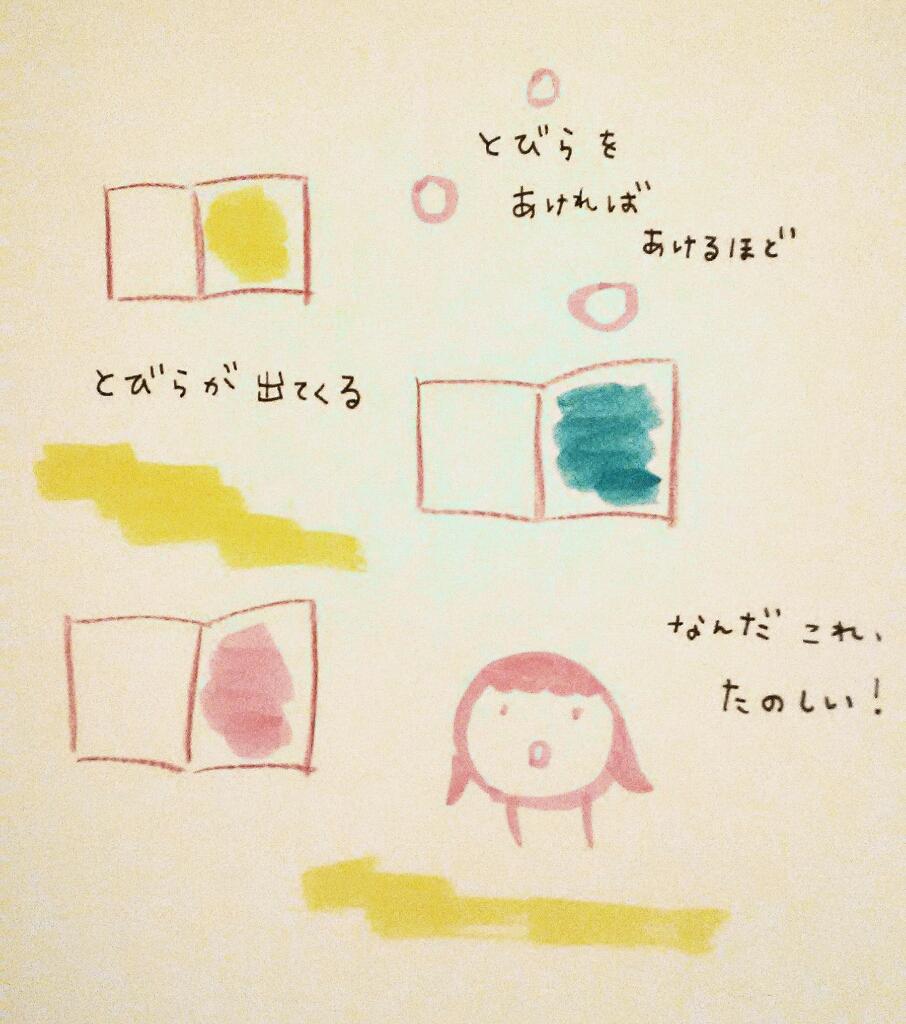 とびらを
あければ
あけるほど
とびらが出てくる
なんだこれ、
たのしい!